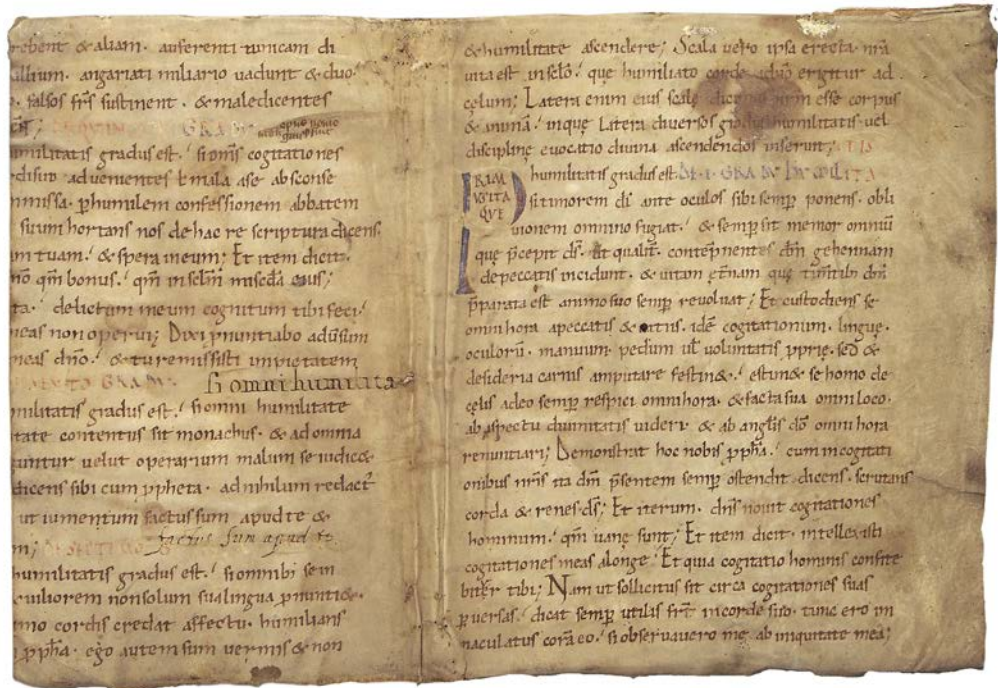 rebent & aliam. auferenti tunicam di
allium. angariati miliario vadunt & duo.
falsos frīs sustinent. & maledicentes
GRADV
umilitatis gradus est. si omīs cogitationes
di suo advenientes t mala a se absconse
missa. p humilem confessionem abbatem
suum hortans nos de hac re scriptura dicens.
m tuam. & spera in eum; Et item dicit.
no qm̄ bonus. qm̄ in sclm̄ miscd̄a eius;
ta. delictum meum cognitum tibi feci.
meas non operui; Dixi pnuntiabo adūsum
meas dn̄o. & tu remissisti impietatem
GRADV. Si omni humilita
militatis gradus est. si omni humilitate
tate contentus sit monachus. & ad omnia
untur velut operarium malum se iudic&
dicens sibi cum ppheta. ad nihilum redact
ut iumentum factus sum apud te &
m; factus sum apud te
humilitatis gradus est. si omnibz sem
c viliorem non solum sua lingua pnuntie.
imo cordis credat affectu. humilians
ppha. ego autem sum vermis & non
& humilitate ascendere; Scala vero ipsa erecta. nr̄a
vita est in sclō. que humiliato corde a dn̄o erigitur ad
cęlum; Latera enim eius scalę dicimus nr̄m esse corpus
& animā. in que latera diversos gradus humilitatis vel
disciplinę evocatio divina ascendendos inseruit; TIS
PRIM humilitatis gradus est. GRADV HVMILITA
VS ITA si timorem dī ante oculos sibi semp ponens. obli
QVE vionem omnino fugiat. & semp sit memor omniū
que pcepit ds. ut qualit contēpnentes dm̄ gehennam
de peccatis incidunt. & vitam ęt̄nam quę tim̄tibz dm̄
pparata est animo suo semp revolvat; Et custodiens se
omni hora a peccatis & vitiis. idē cogitationum. linguę.
oculorū. manuum. pedum ul voluntatis pprię. sed &
desideria carnis amputare festin&. estim& se homo de
cęlis a deo semp respici omni hora. & facta sua omni loco.
ab aspectu divinitatis videri & ab anglis dō omni hora
renuntiari; Demonstrat hoc nobis ppha. cum in cogitati
onibus nr̄is ita dm̄ psentem semp ostendit dicens. scrutans
corda & renes ds; Et iterum. dn̄s novit cogitationes
hominum. qm̄ vanę sunt; Et item dicit. intellexisti
cogitationes meas a longe. Et quia cogitatio hominis confite
bitur tibi; Nam ut sollicitus sit circa cogitationes suas
pversas. dicat semp utilis frt̄ in corde suo. tunc ero im
maculatus corā eo. si observavero me ab iniquitate mea;